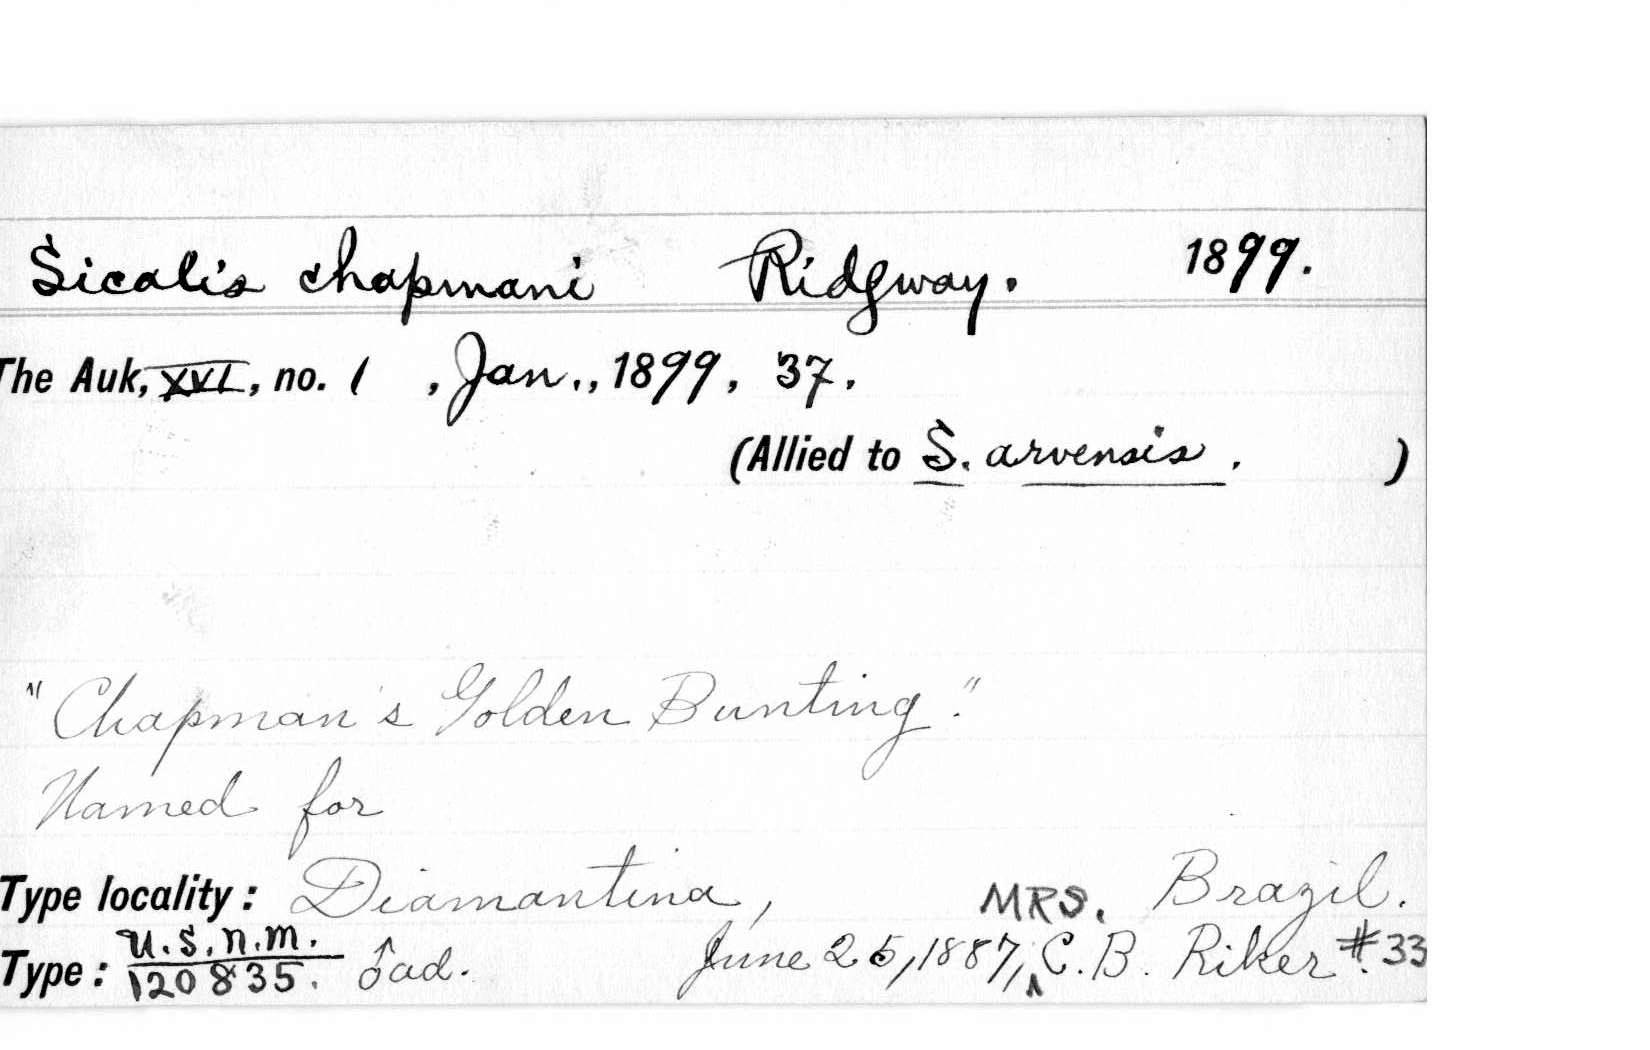 Sicalis chapmani Ridgway. 1899.
The Auk, XVI, no. 1, Jan., 1899, 37.
(Allied to S. arvensis. )
"Chapman's Golden Bunting."
Named for
Type locality: Diamantina, Brazil.
MRS.
Type: U.S.N.M. 120835. ♂ ad. June 25, 1887, ^ C. B. Riker #33